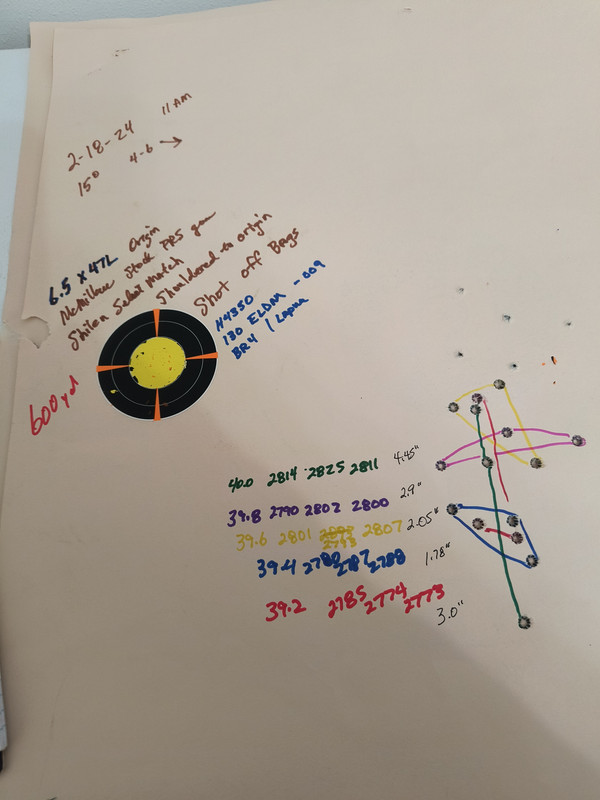 2-18-24 11 AM
15° 4-6 →
6.5 x 47L Origin
McMillan Stock PRS gun
Shilen Select Match
Shouldered to origin
Shot off Bags
H4350
130 ELDM -.009
BR4 / Lapua
600 yd
40.0 2814 2825 2811 4.45"
39.8 2790 2802 2800 2.9"
39.6 2801 2793 2807 2.05"
39.4 2782 2787 2788 1.78"
39.2 2785 2774 2773 3.0"